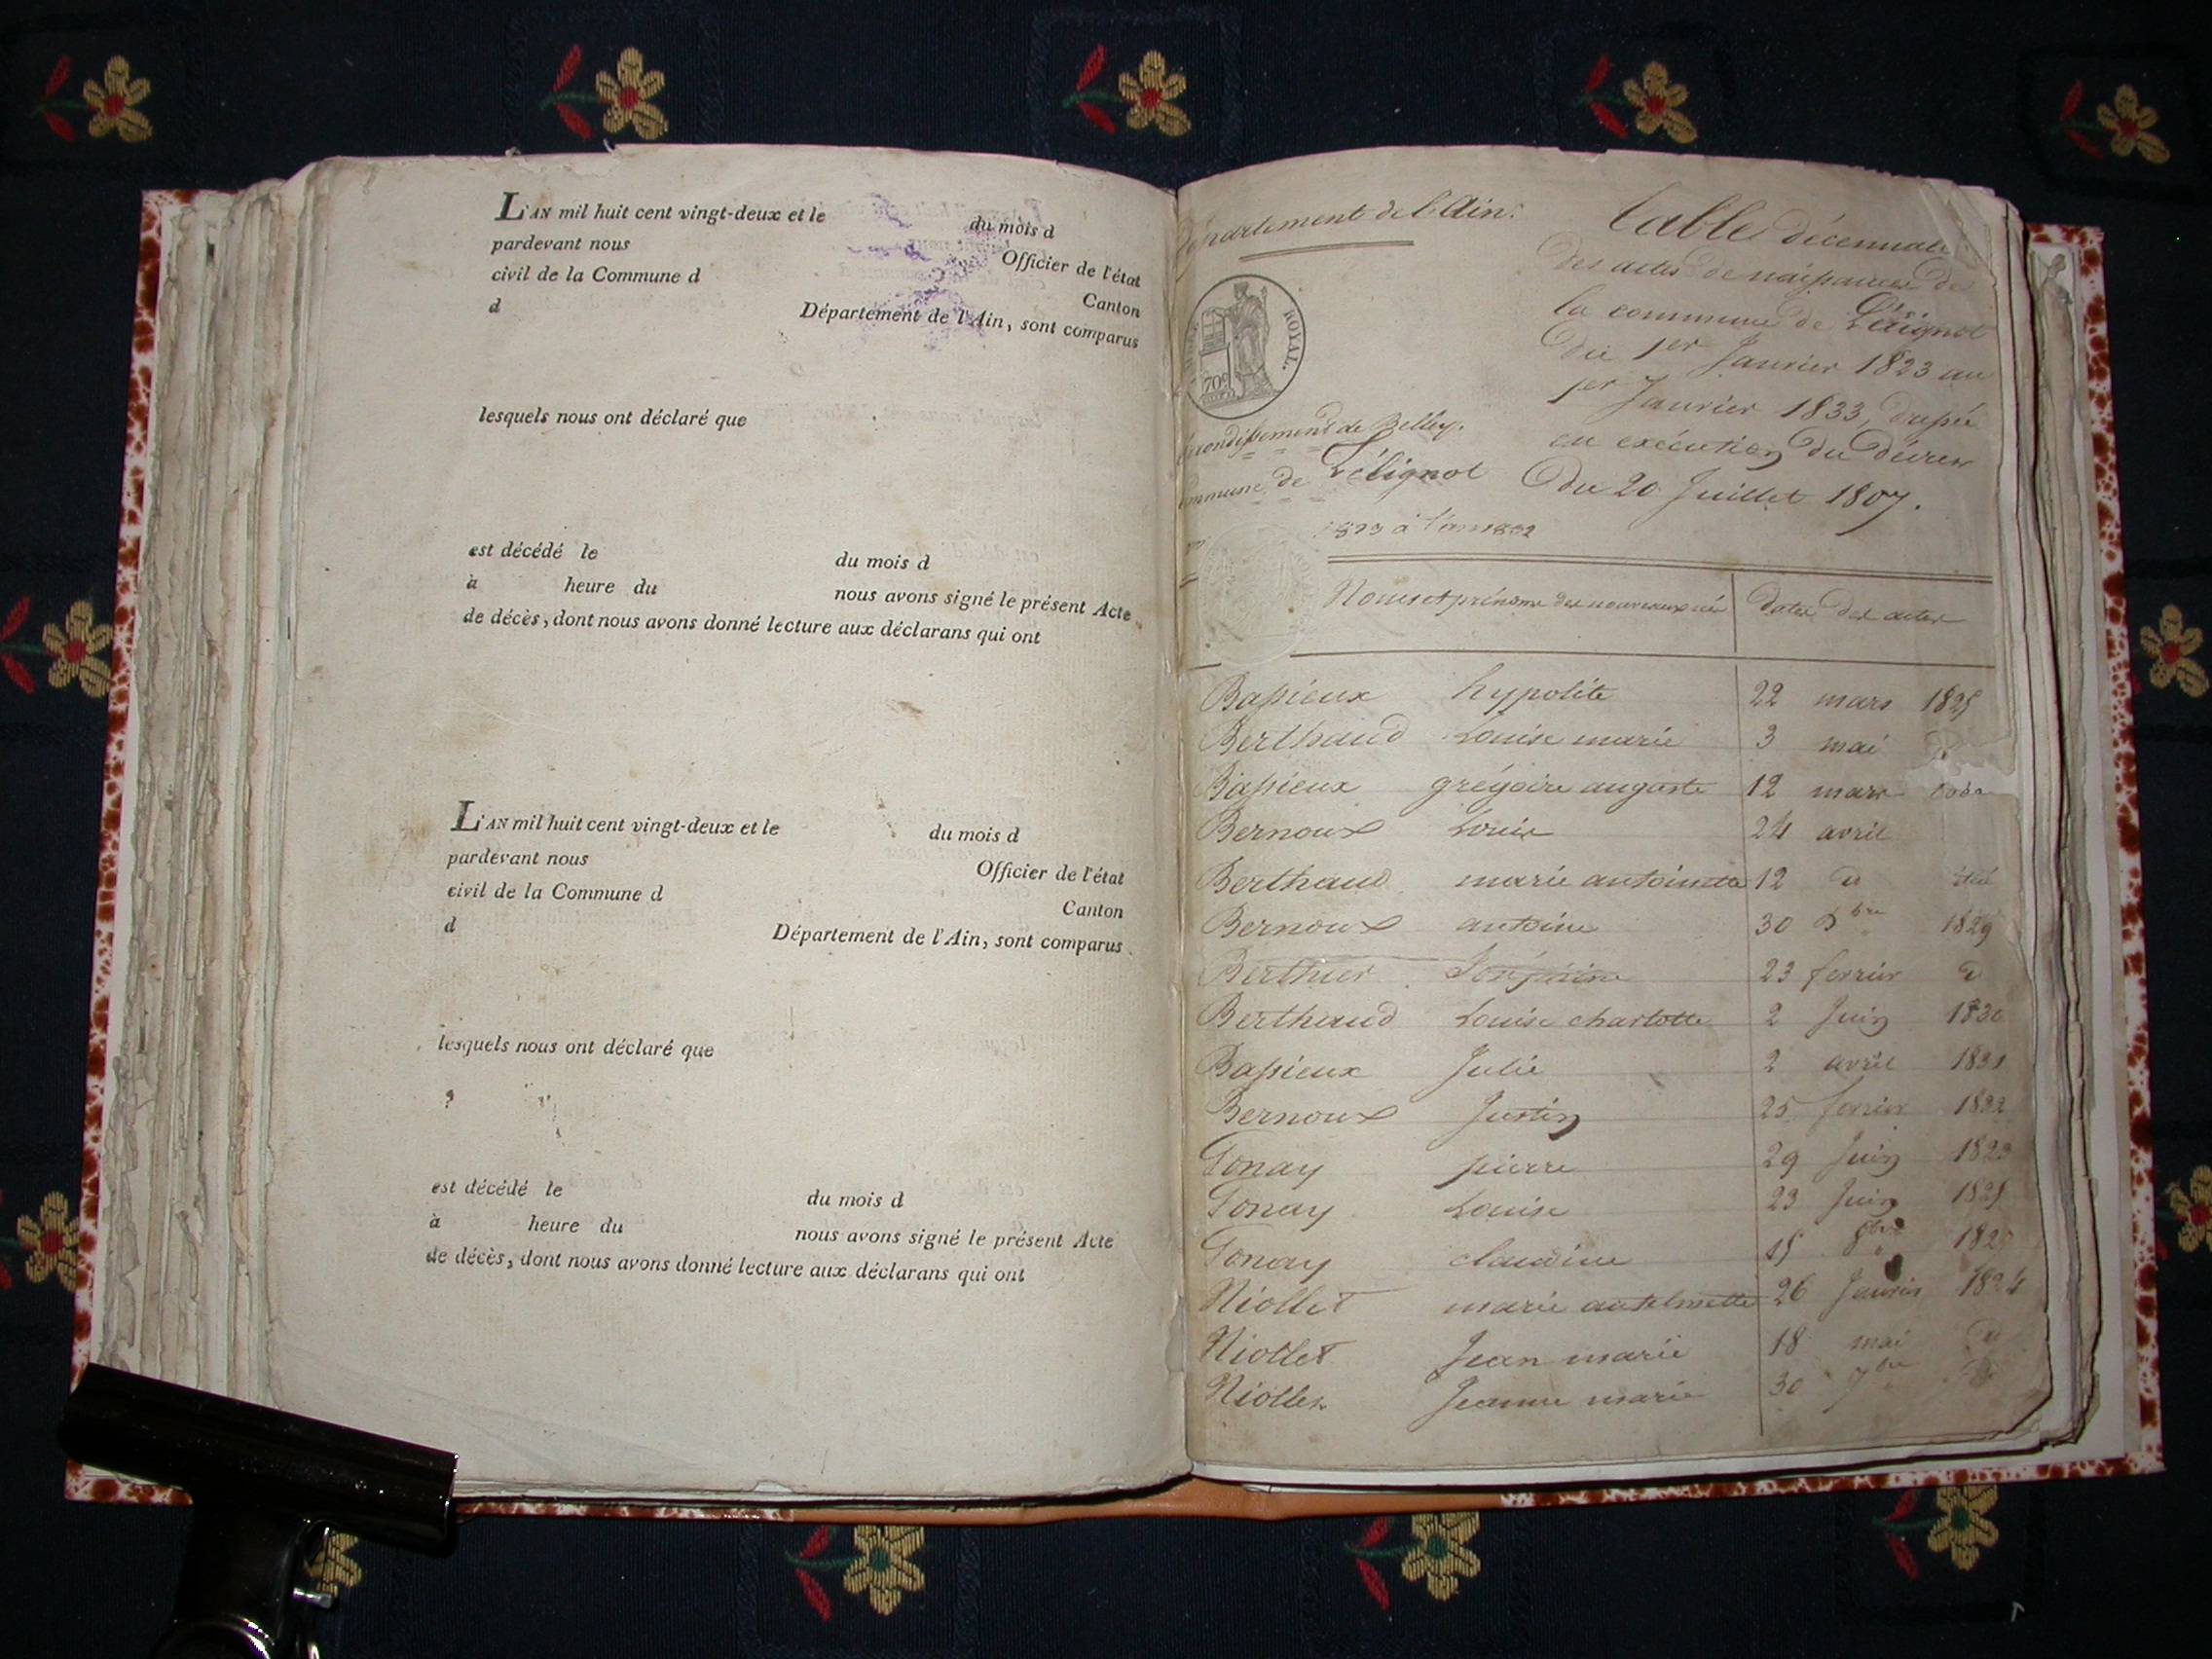 L'AN mil huit cent vingt-deux et le du mois d
pardevant nous Officier de l'état
civil de la Commune d Canton
d Département de l'Ain, sont comparus
lesquels nous ont déclaré que
est décédé le du mois d
à heure du nous avons signé le présent Acte
de décès, dont nous avons donné lecture aux déclarans qui ont
L'AN mil huit cent vingt-deux et le du mois d
pardevant nous Officier de l'état
civil de la Commune d Canton
d Département de l'Ain, sont comparus
lesquels nous ont déclaré que
est décédé le du mois d
à heure du nous avons signé le présent Acte
de décès, dont nous avons donné lecture aux déclarans qui ont
département de l'Ain.
ROYAL.
70c
arrondissement de Belley.
commune de Pélignot
1823 à l'an 1832
Table décennale
des actes de naissances de
la commune de
du 1er Janvier 1823 au
1er Janvier 1833, dressé
en exécution du Décret
Du 20 Juillet 1807.
Noms et prénoms des nouveaux nés Dates des actes
Bassieux hypolite 22 mars 1825
Berthaud Louise marie 3 mai
Bassieux grégoire auguste 12 mars
Bernoux Louis 24 avril
Berthaud marie antoinette 12 d
Bernoux antoine 30 bre 1829
Berthier Joséphine 23 fevrier d
Berthaud Louise charlotte 2 Juin 1830
Bassieux Julie 2 avril 1831
Bernoux Justin 25 fevrier 1832
Gonay pierre 29 Juin 1823
Gonay Louise 23 Juin 1825
Gonay claudine 15 8bre
Niollet marie anthelmette 26 Janvier 1824
Niollet Jean marie 18 mai d
Niollet Jeanne marie 30 7bre d